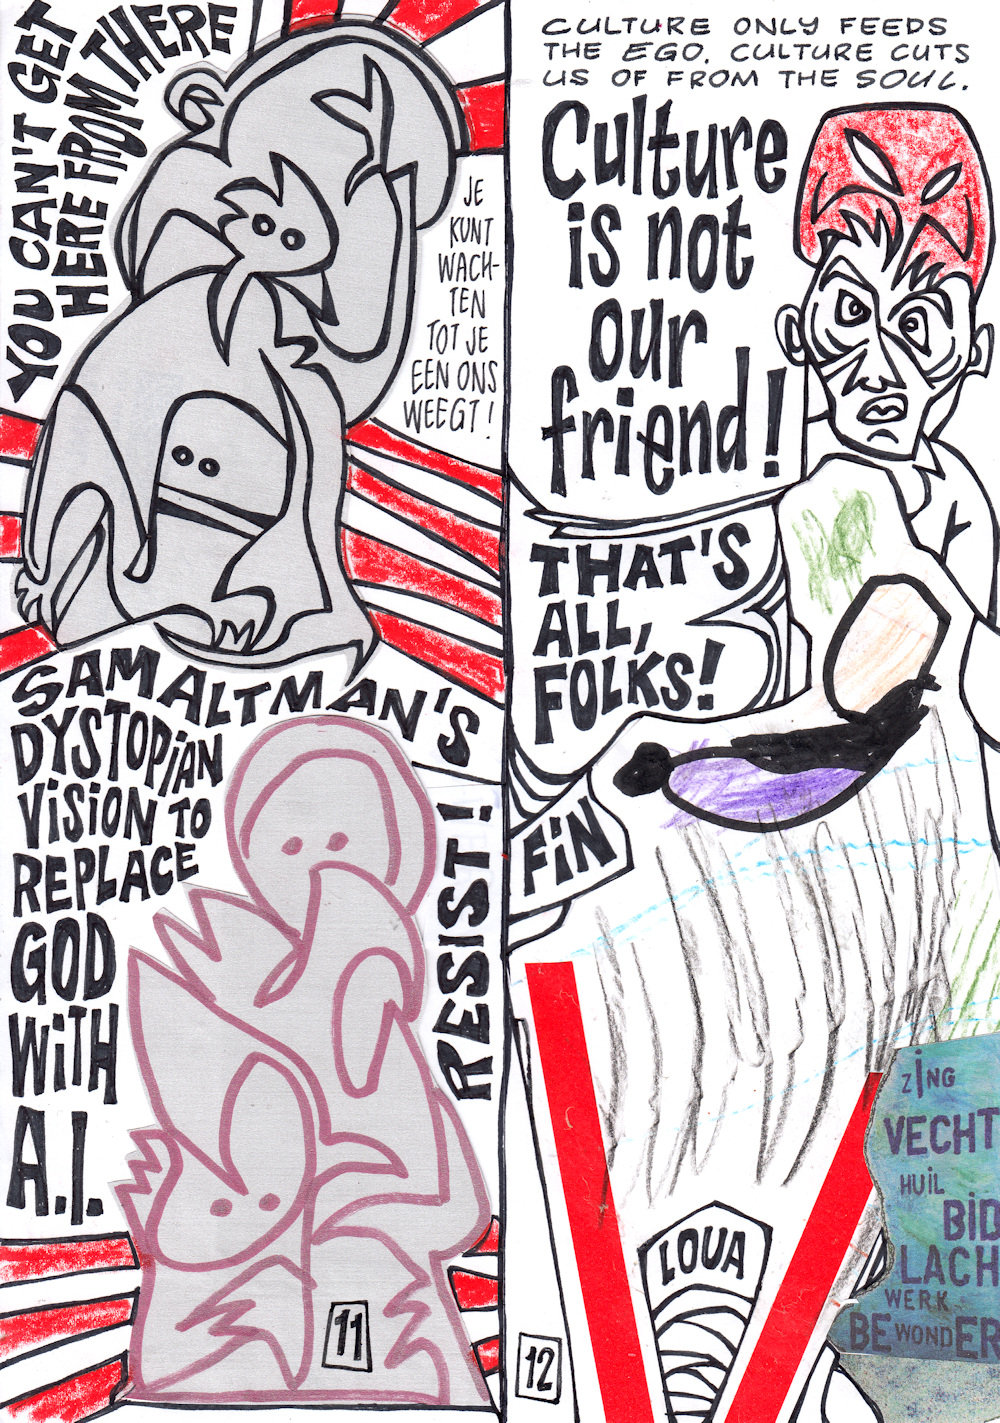 YOU CAN'T GET
HERE FROM THERE
JE
KUNT
WACH-
TEN
TOT JE
EEN ONS
WEEGT!
SAM ALTMAN'S
DYSTOPiAN
ViSiON TO
REPLACE
GOD
WiTH
A.I.
RESIST!
11
CULTURE ONLY FEEDS
THE EGO. CULTURE CUTS
US OF FROM THE SOUL.
Culture
is not
our
friend!
THAT'S
ALL,
FOLKS!
FiN
LOUA
12
ZiNG
VECHT
HUIL
BID
LACH
WERK
BEWONDER